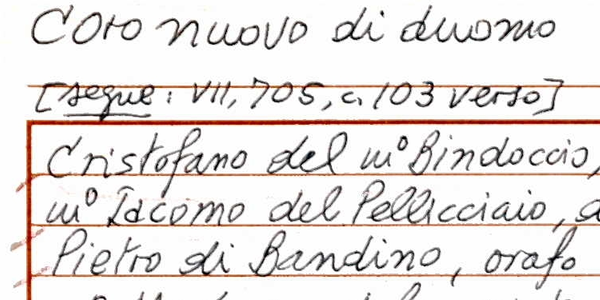 Coro nuovo di duomo
[segue: VII, 705, c. 103 verso]
Cristofano del mº Bindoccio,
mº Iacomo del Pellicciaio,
Pietro di Bandino, orafo